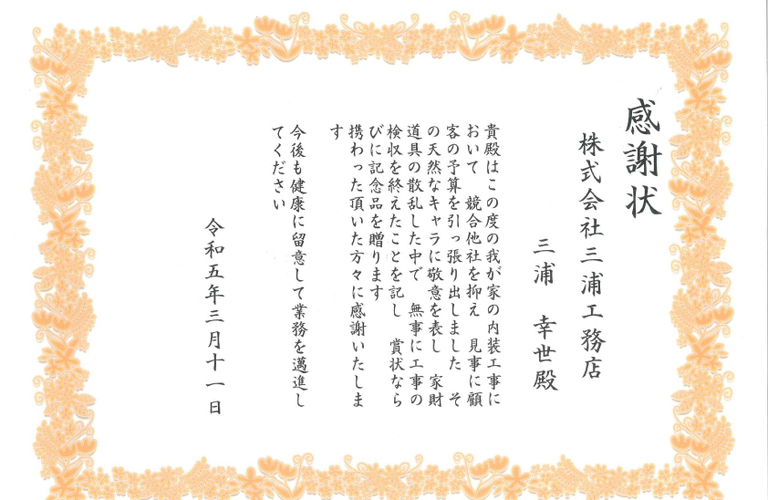 感謝状
株式会社三浦工務店
三浦　幸世殿
貴殿はこの度の我が家の内装工事に
おいて　競合他社を抑え　見事に顧
客の予算を引っ張り出しました　そ
の天然なキャラに敬意を表し　家財
道具の散乱した中で　無事に工事の
検収を終えたことを記し　賞状なら
びに記念品を贈ります
携わった頂いた方々に感謝いたしま
す
今後も健康に留意して業務を邁進し
てください
令和五年三月十一日